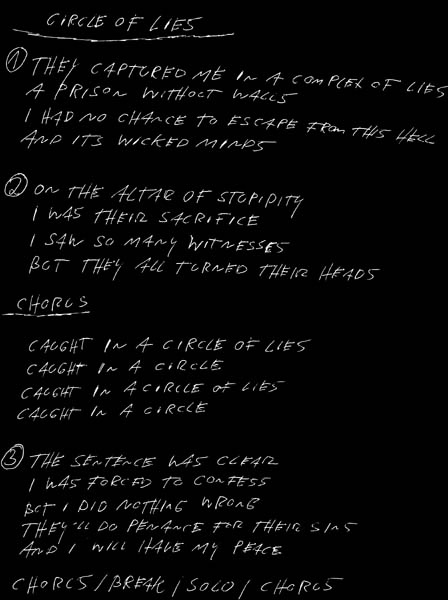 CIRCLE OF LIES
① THEY CAPTURED ME IN A COMPLEX OF LIES
A PRISON WITHOUT WALLS
I HAD NO CHANCE TO ESCAPE FROM THIS HELL
AND ITS WICKED MINDS
② ON THE ALTAR OF STUPIDITY
I WAS THEIR SACRIFICE
I SAW SO MANY WITNESSES
BUT THEY ALL TURNED THEIR HEADS
CHORUS
CAUGHT IN A CIRCLE OF LIES
CAUGHT IN A CIRCLE
CAUGHT IN A CIRCLE OF LIES
CAUGHT IN A CIRCLE
③ THE SENTENCE WAS CLEAR
I WAS FORCED TO CONFESS
BUT I DID NOTHING WRONG
THEY'LL DO PENANCE FOR THEIR SINS
AND I WILL HAVE MY PEACE
CHORUS / BREAK / SOLO / CHORUS